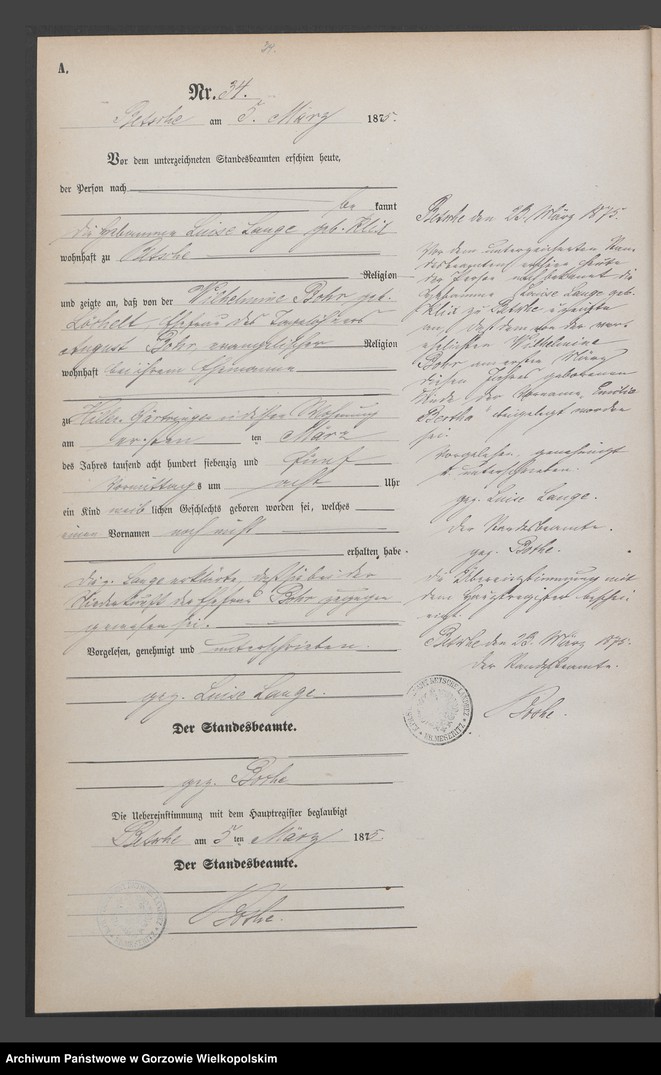 34.
A.
Nr. 34.
Betsche am 5. März 1875.
Vor dem unterzeichneten Standesbeamten erschien heute,
der Person nach
be kannt
die Hebamme Luise Lange geb. Klix
wohnhaft zu Betsche
Religion
und zeigte an, daß von der Wilhelmine Bohr geb.
Ehefrau des Tagelöhners
August Bohr evangelischer Religion
wohnhaft bei ihrem Ehemanne
zu Wohnung
am ersten ten März
des Jahres tausend acht hundert siebenzig und fünf
Vormittags um acht Uhr
ein Kind weib lichen Geschlechts geboren worden sei, welches
einen Vornamen noch nicht
erhalten habe.
Die Lange erklärte, daß sie bei der
Niederkunft der Bohr zugegen
gewesen sei.
Vorgelesen, genehmigt und unterschrieben.
gez. Luise Lange.
Der Standesbeamte.
gez. Bothe
Die Uebereinstimmung mit dem Hauptregister beglaubigt
Betsche am 5 ten März 1875.
Der Standesbeamte.
Bothe.
Betsche den 23. März 1875.
Vor dem unterzeichneten Stan-
desbeamten erschien heute
der Person nach bekannt die
Hebamme Luise Lange geb.
Klix zu Betsche und zeigte
an, daß dem von der ver-
ehelichten Wilhelmine
Bohr am ersten März
dieses Jahres geborenen
Kinde der Vorname Emilie
Bertha beigelegt worden
sei.
Vorgelesen, genehmigt
u. unterschrieben.
gez. Luise Lange.
Der Standesbeamte.
gez. Bothe.
Die Übereinstimmung mit
dem Hauptregister beschei-
nigt.
Betsche den 23. März 1875.
Der Standesbeamte.
Bothe.
KR. MESERITZ
Archiwum Państwowe w Gorzowie Wielkopolskim